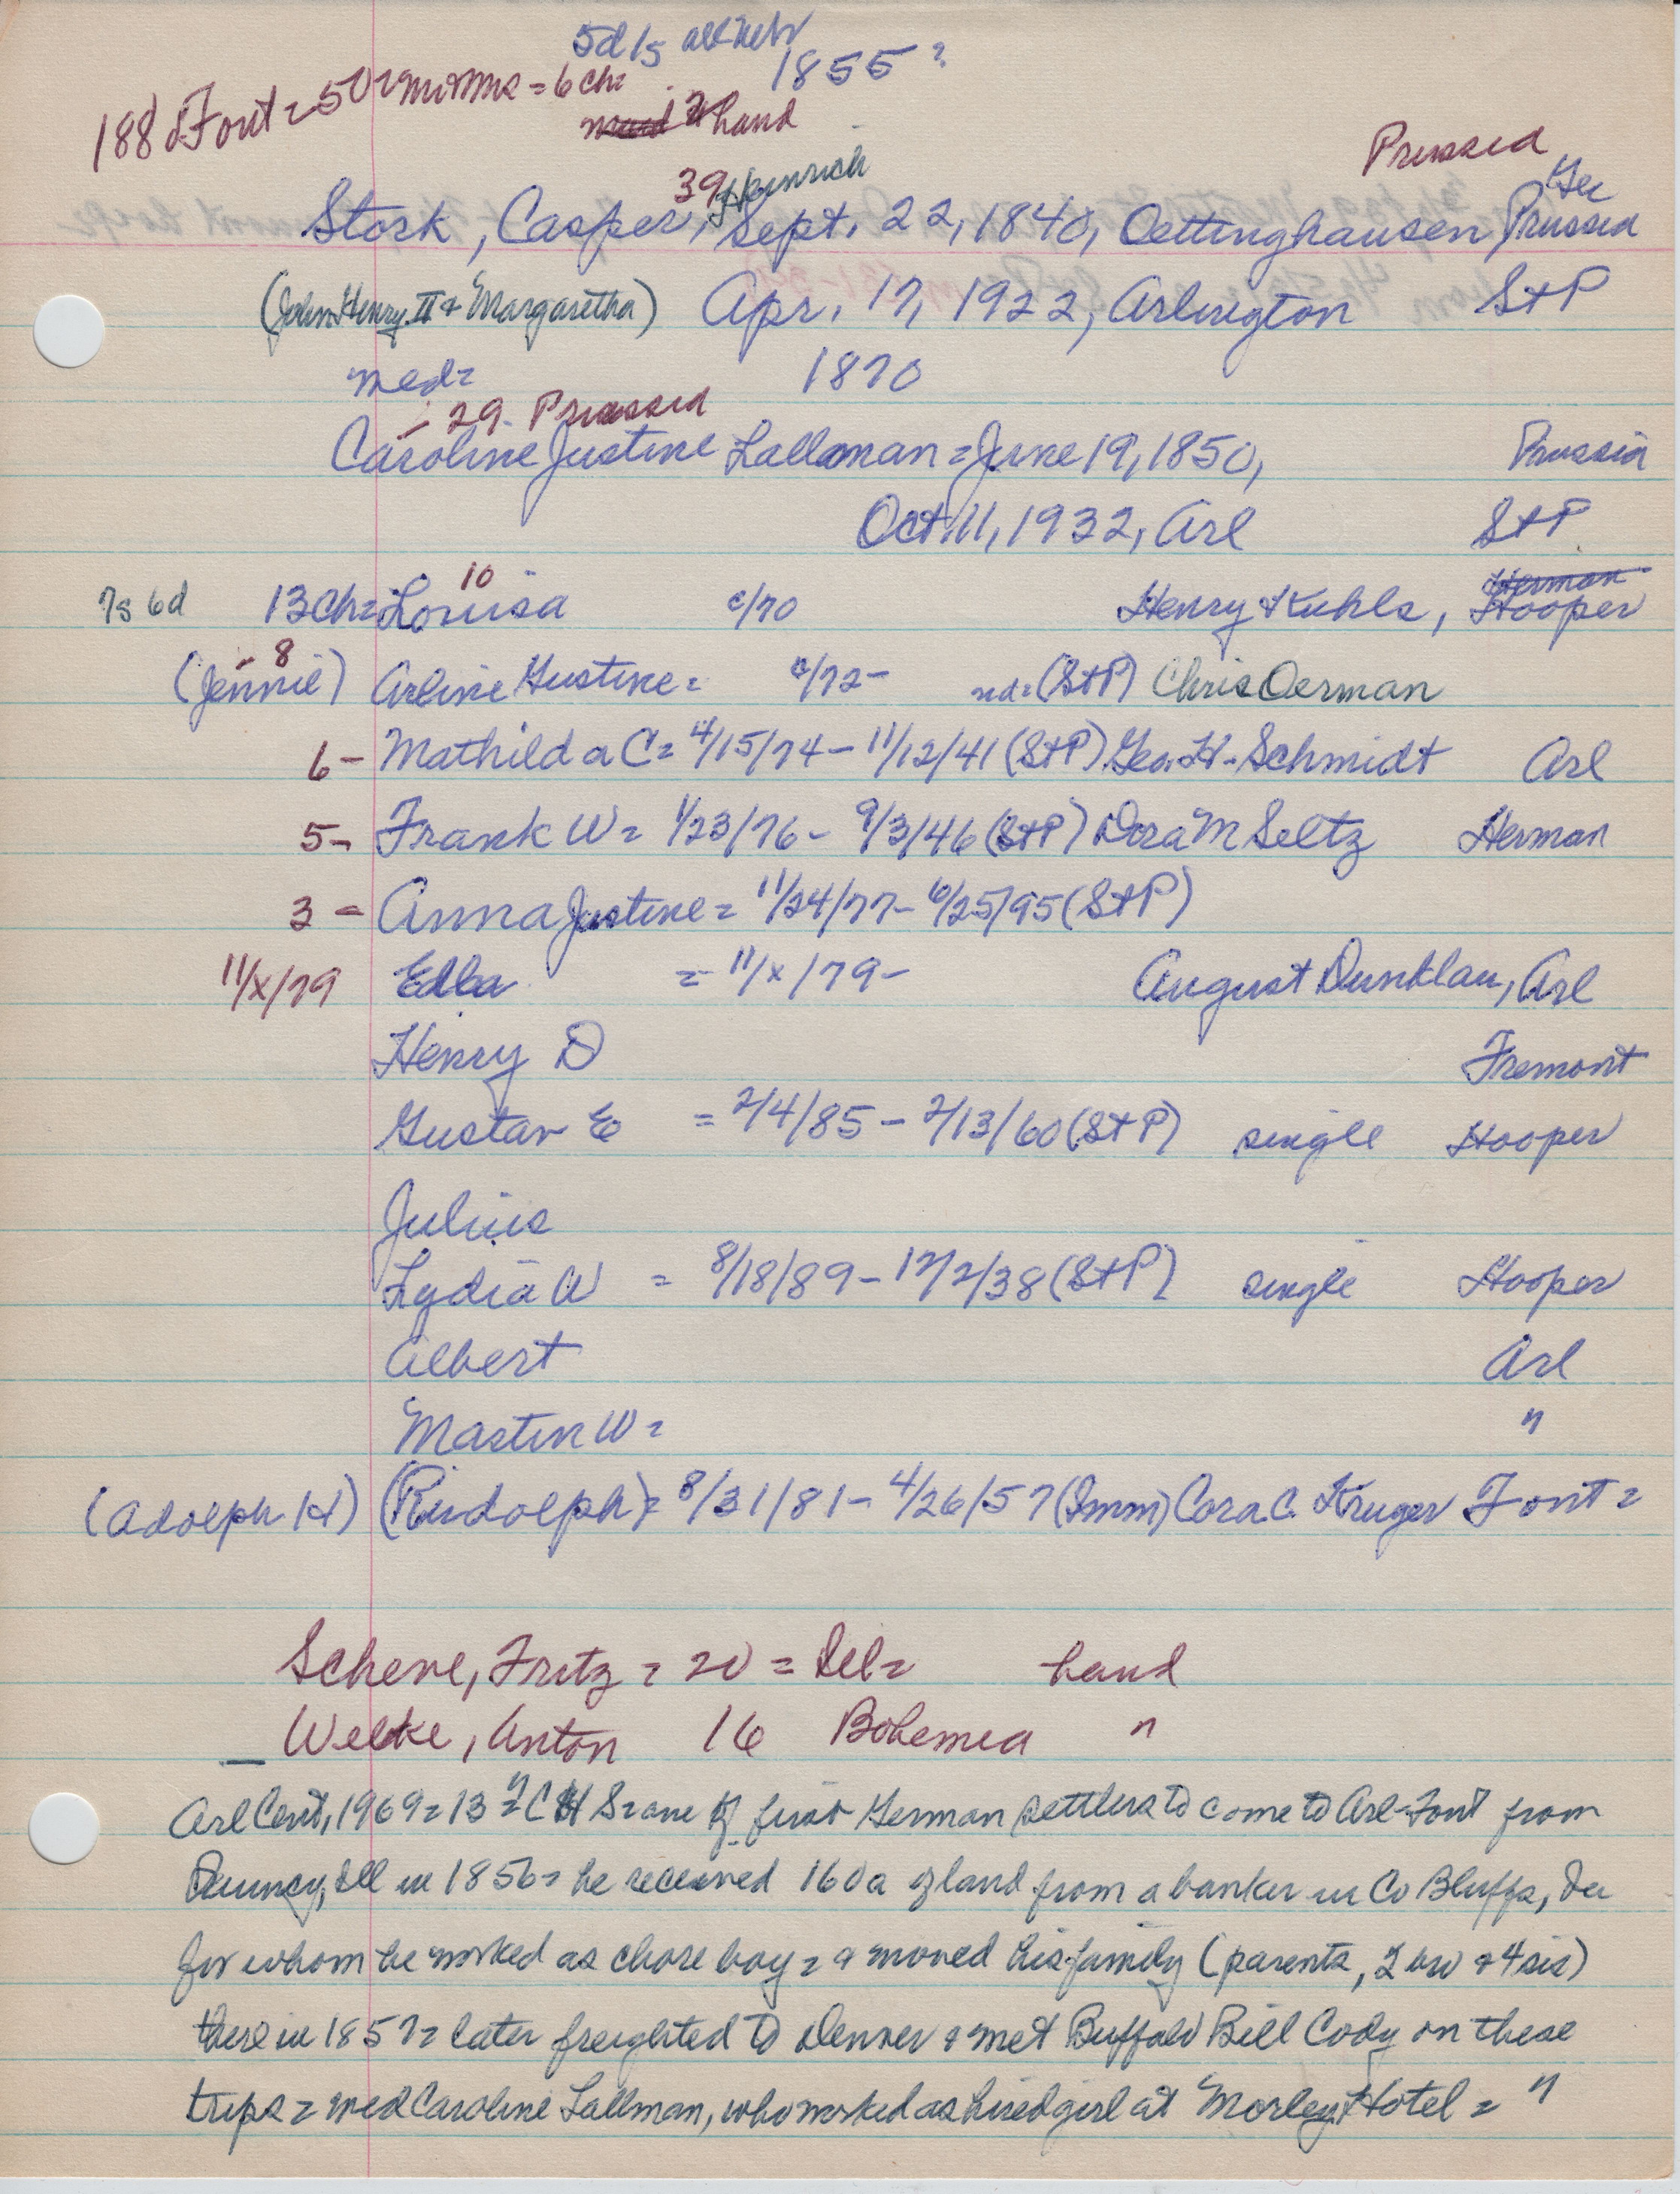 5d 1s all Neb
1855?
1880 Font = 50 = = 6 ch =
hand
Prussia
39 Heinrich Ger
Stork, Casper, Sept. 22, 1840, Oettinghausen Prussia
(John Henry II & Margaretha) Apr. 17, 1922, Arlington St P
med= 1870
- 29. Prussia
Caroline Justine Lallman = June 19, 1850, Prussia
Oct. 11, 1932, Arl St P
10 Herman
7s 6d 13 ch = Louisa c/70 Henry Kuhls, Hooper
- 8
(Jennie) Arline Gustine = c/72 - nd = (St P) Chris Oerman
6 - Mathilda C = 4/15/74 - 11/12/41 (St P) Geo. H. Schmidt Arl
5 - Frank W = 1/23/76 - 9/3/46 (St P) Dora M Seltz Herman
3 - Anna Justine = 11/24/77 - 6/25/95 (St P)
11/x/79 Edba = 11/x/79 - August Dunklau, Arl
Henry D Fremont
Gustav E = 2/4/85 - 2/13/60 (St P) single Hooper
Julius
Lydia W = 8/18/89 - 12/2/38 (St P) single Hooper
Albert Arl
Martin W = "
(Adolph H) (Rudolph) = 8/31/81 - 4/26/57 (Imm) Cora C. Kruger Font =
Scheve, Fritz = 20 = hand
Welke, Anton 16 Bohemia "
Arl Cent, 1969 = 13 = C H S = one of first German settlers to come to Arl-Font from
Quincy, Ill in 1856 = he received 160 a of land from a banker in Co Bluffs, Ia
for whom he worked as chore boy = & moved his family (parents, 2 bro & 4 sis)
there in 1857 = later freighted to Denver & met Buffalo Bill Cody on these
trips = med Caroline Lallman, who worked as hired girl at Morley Hotel = "